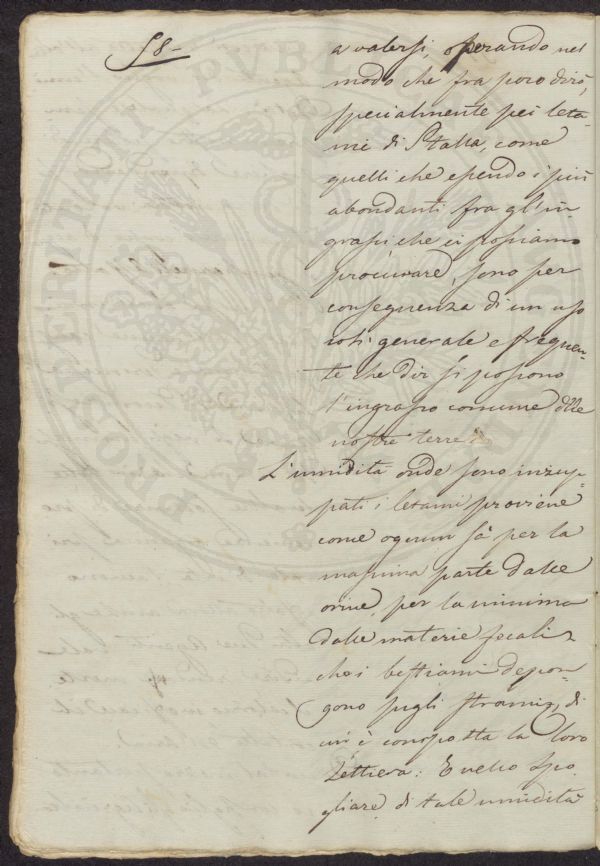 58-
a valersi, operando nel
modo che fra poco dirò,
specialmente pei leta-
mi di Stalla, come
quelli che essendo i più
abondanti fra gl'in-
grassi che ci possiamo
procurare, sono per
conseguenza di un uso
così generale e frequen-
te che dir si possono
l'ingrasso comune delle
nostre terre.
L'umidità onde sono inzup-
pati i letami proviene
come ognun sà per la
massima parte dalle
orine, per la minima
dalle materie fecali
che i bestiami depon-
gono sugli strami, di
cui è composta la loro
Lettiera: E nello spo-
gliare di tale umidità
PROSPERITATI PUBLICAE